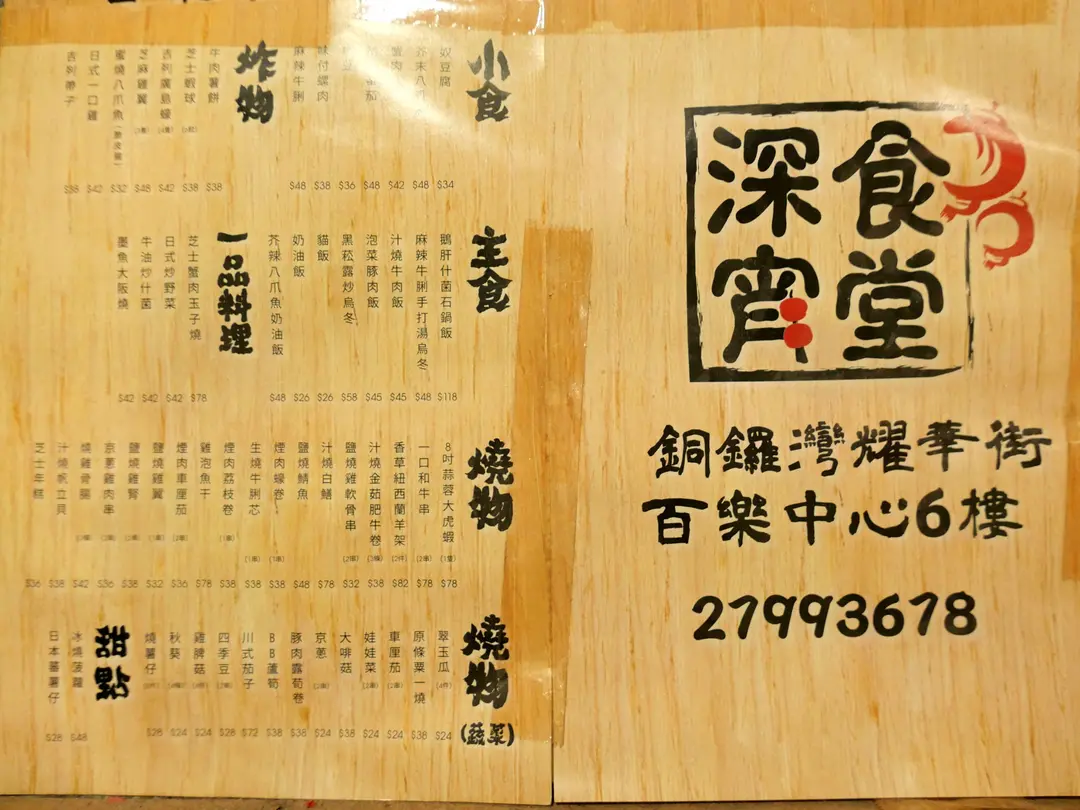 小食
奴豆腐 $34
芥末八爪 $48
蟹肉 $42
番茄 $48
$36
味付螺肉 $38
麻辣牛脷 $48
炸物
牛肉薯餅 $38
芝士蝦球 $38
吉列廣島蠔 $42
芝麻雞翼 $48
蜜燒八爪魚 $32
日式一口雞 $42
吉列帶子 $38
主食
鵝肝什菌石鍋飯 $118
麻辣牛脷手打湯烏冬 $48
汁燒牛肉飯 $45
泡菜豚肉飯 $45
黑菘露炒烏冬 $58
貓飯 $26
奶油飯 $26
芥辣八爪魚奶油飯 $48
一品料理
芝士蟹肉玉子燒 $78
日式炒野菜 $42
牛油炒什菌 $42
墨魚大阪燒 $42
燒物
8吋蒜蓉大虎蝦 (1隻) $78
一口和牛串 (2串) $78
香草紐西蘭羊架 (2件) $82
汁燒金菇肥牛卷 $38
鹽燒雞軟骨串 (2串) $32
汁燒白鱔 $78
鹽燒鯖魚 $48
煙肉蠔卷 (1串) $38
生燒牛脷芯 (1串) $38
煙肉荔枝卷 (1串) $38
雞泡魚干 $78
煙肉車厘茄 $36
鹽燒雞翼 $32
鹽燒雞腎 $38
京蔥雞肉串 $36
燒雞骨腸 $42
汁燒帆立貝 $38
芝士年糕 $36
燒物(蔬菜)
翠玉瓜 (4件) $24
原條粟一燒 $38
車厘茄 (2串) $24
娃娃菜 (2串) $24
大啡菇 $38
京蔥 (2串) $24
豚肉露荀卷 $38
BB蘆筍 $38
川式茄子 $72
四季豆 $28
雞脾菇 $24
秋葵 $24
燒薯仔 $28
甜點
冰燒菠蘿 $48
日本蕃薯仔 $28
深宵食堂
銅鑼灣耀華街
百樂中心6樓
27993678